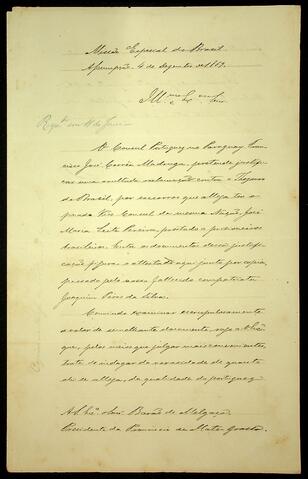 Missão Especial do Brasil
Assumpção 4 de Dezembro de 1869.
Ill.mo e Ex.mo Snr.
O Consul Portuguez no Paraguay Fran-
cisco José Corrêa Madruga, pretende justifi-
car uma avultada reclamação contra o Thesouro
do Brasil, por soccorros que allega ter o
Consul da mesma Nação José
Maria Leite Pereira, prestado a prisioneiros
brasileiros. Entre os documentos dessa justifi-
cação figura o attestado aqui junto por copia,
passado pelo nosso fallecido compatriota
Joaquim Pires da Silva.
Convindo examinar escrupulosamente
o valor de semelhante documento, rogo a V. Ex.ª
que, pelos meios que julgar mais convenientes,
trate de indagar da veracidade de quanto
ahi se allega, da qualidade de portuguez
A S. Ex.ª o Snr. Barão de Melgaço
Presidente da Provincia de Mato Grosso.